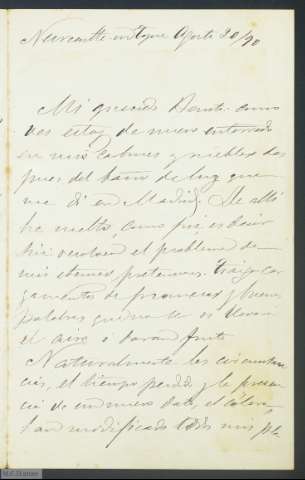 Newcastle on Tyne Agosto 20/90
Mi querido Benito: como
ves estoy de nuevo enterrado
en mis carbones y nieblas des
pues del baño de luz que
me di en Madrid. De allí
he vuelto, como fui, es decir
sin resolver el problema de
mis eternas pretensiones. Traigo car
gamento de promesas y buenas
palabras que no se si se llevará
el aire o darán fruto
Naturalmente las circunstan
cias, el tiempo perdido y la presen
cia de un nuevo dato, el cólera,
han modificado todos mis pla